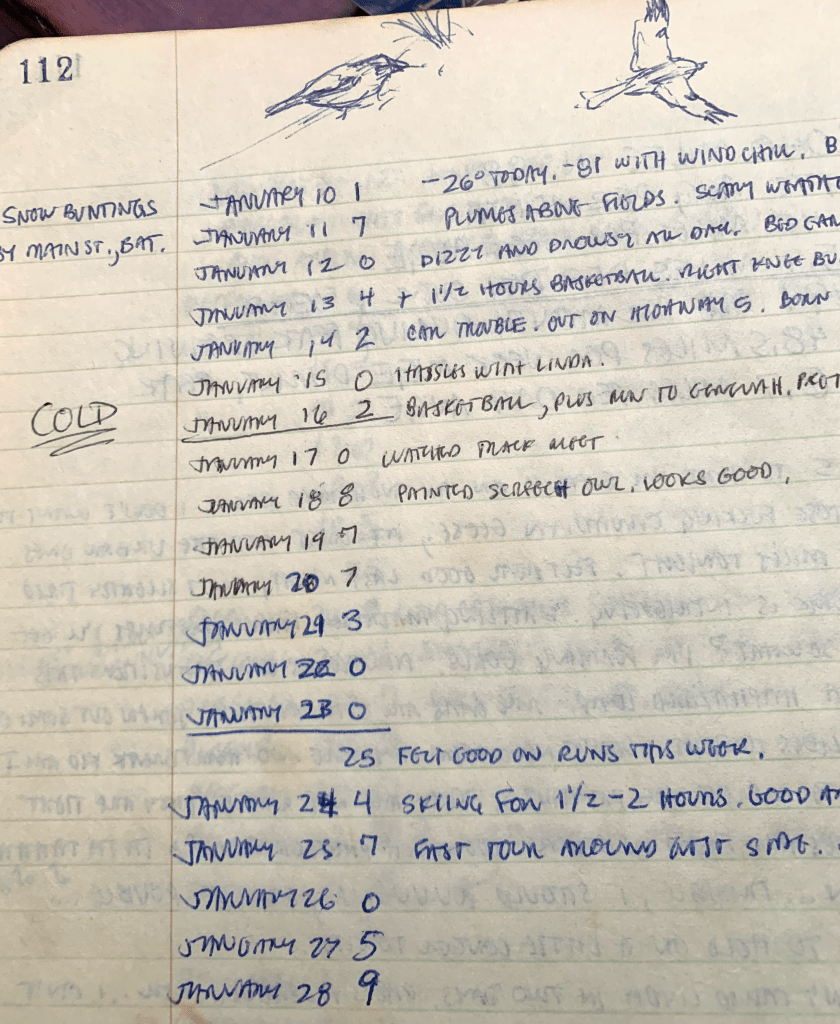 112
SNOW BUNTINGS
BY MAIN ST., BAT.
COLD
JANUARY 10 1 -26° TODAY. -81 WITH WINDCHILL. B
JANUARY 11 7 PLUMES ABOVE FIELDS. SCARY WEATH
JANUARY 12 0 DIZZY AND DROWSY ALL DAY. BED CAN
JANUARY 13 4 + 1 1/2 HOURS BASKETBALL. RIGHT KNEE BU
JANUARY 14 2 CAR TROUBLE. OUT ON HIGHWAY 5. BORN
JANUARY 15 0 HASSLES WITH LINDA.
JANUARY 16 2 BASKETBALL, PLUS RUN TO
JANUARY 17 0 WATCHED TRACK MEET.
JANUARY 18 8 PAINTED SCREECH OWL. LOOKS GOOD.
JANUARY 19 7
JANUARY 20 7
JANUARY 21 3
JANUARY 22 0
JANUARY 23 0
25 FELT GOOD ON RUNS THIS WEEK.
JANUARY 24 4 SKIING FOR 1 1/2 - 2 HOURS. GOOD
JANUARY 25 7 FAST TOUR AROUND
JANUARY 26 0
JANUARY 27 5
JANUARY 28 9